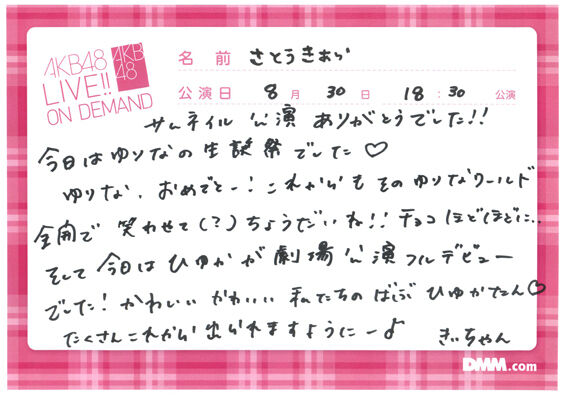 AKB48
LIVE!!
ON DEMAND
AKB
48
名 前 さとうきあら
公演日 8月 30日 18:30 公演
サムネイル公演 ありがとうでした!!
今日はゆりなの生誕祭でした♡
ゆりな、おめでとー! これからもそのゆりなワールド
全開で 笑わせて(?)ちょうだいね!! チョコほどほどに..
そして今日はひゆかが劇場公演フルデビュー
でした! かわいい かわいい 私たちの ひゆかたん♡
たくさんこれから出られますようにー♪ きぃちゃん
DMM.com